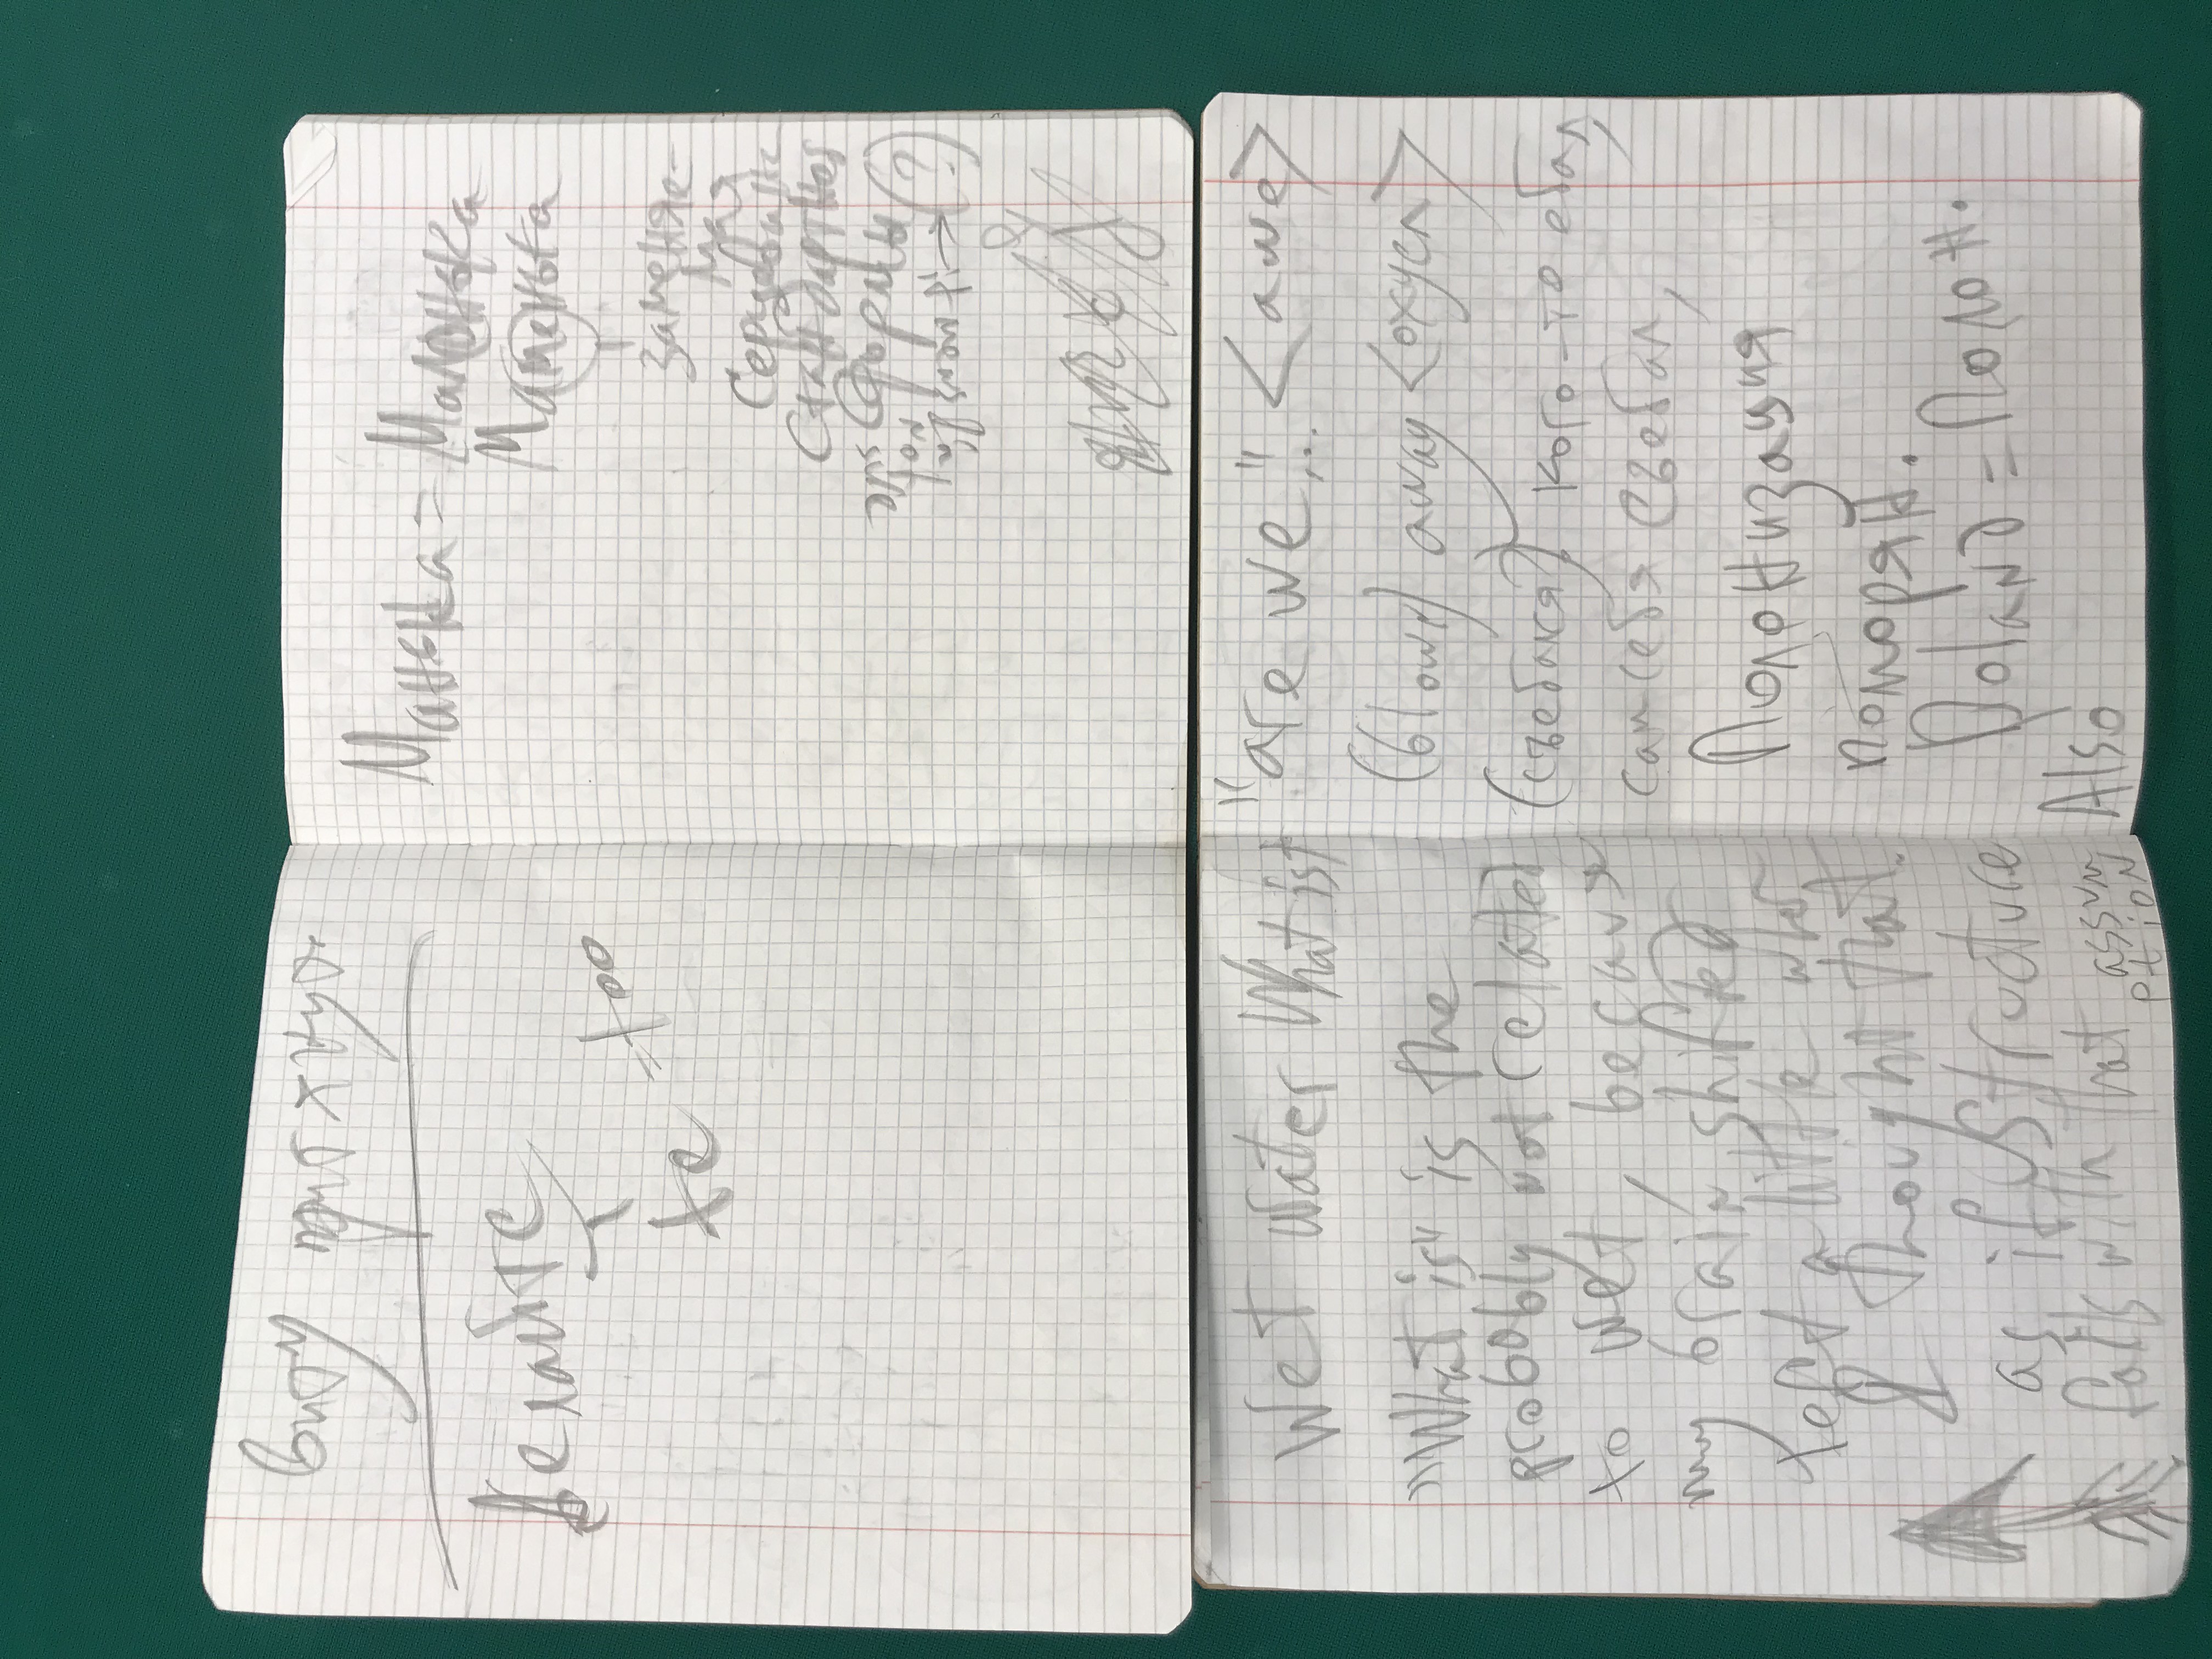 Делайте
те
=too
Манька = Маленька
Маменька
Заменяе-
мая
Середина
Стандартной
Формы
(?)
Wet water What is
"What is" is the
probobly not related
to wet, because
my brain shifted
left a little when
I thought that.
as if structure
falls with that assum
ption
"are we"... <awe>
(blown) away <oxygen>
(съебался) кого-то ебал,
сам себя съебал,
Полонизация
поморян.
Poland = Полон.
Also